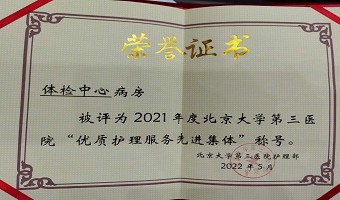 荣誉证书
体检中心病房
被评为2021年度北京大学第三医
院“优质护理服务先进集体”称号。
北京大学第三医院护理部
2022年5月